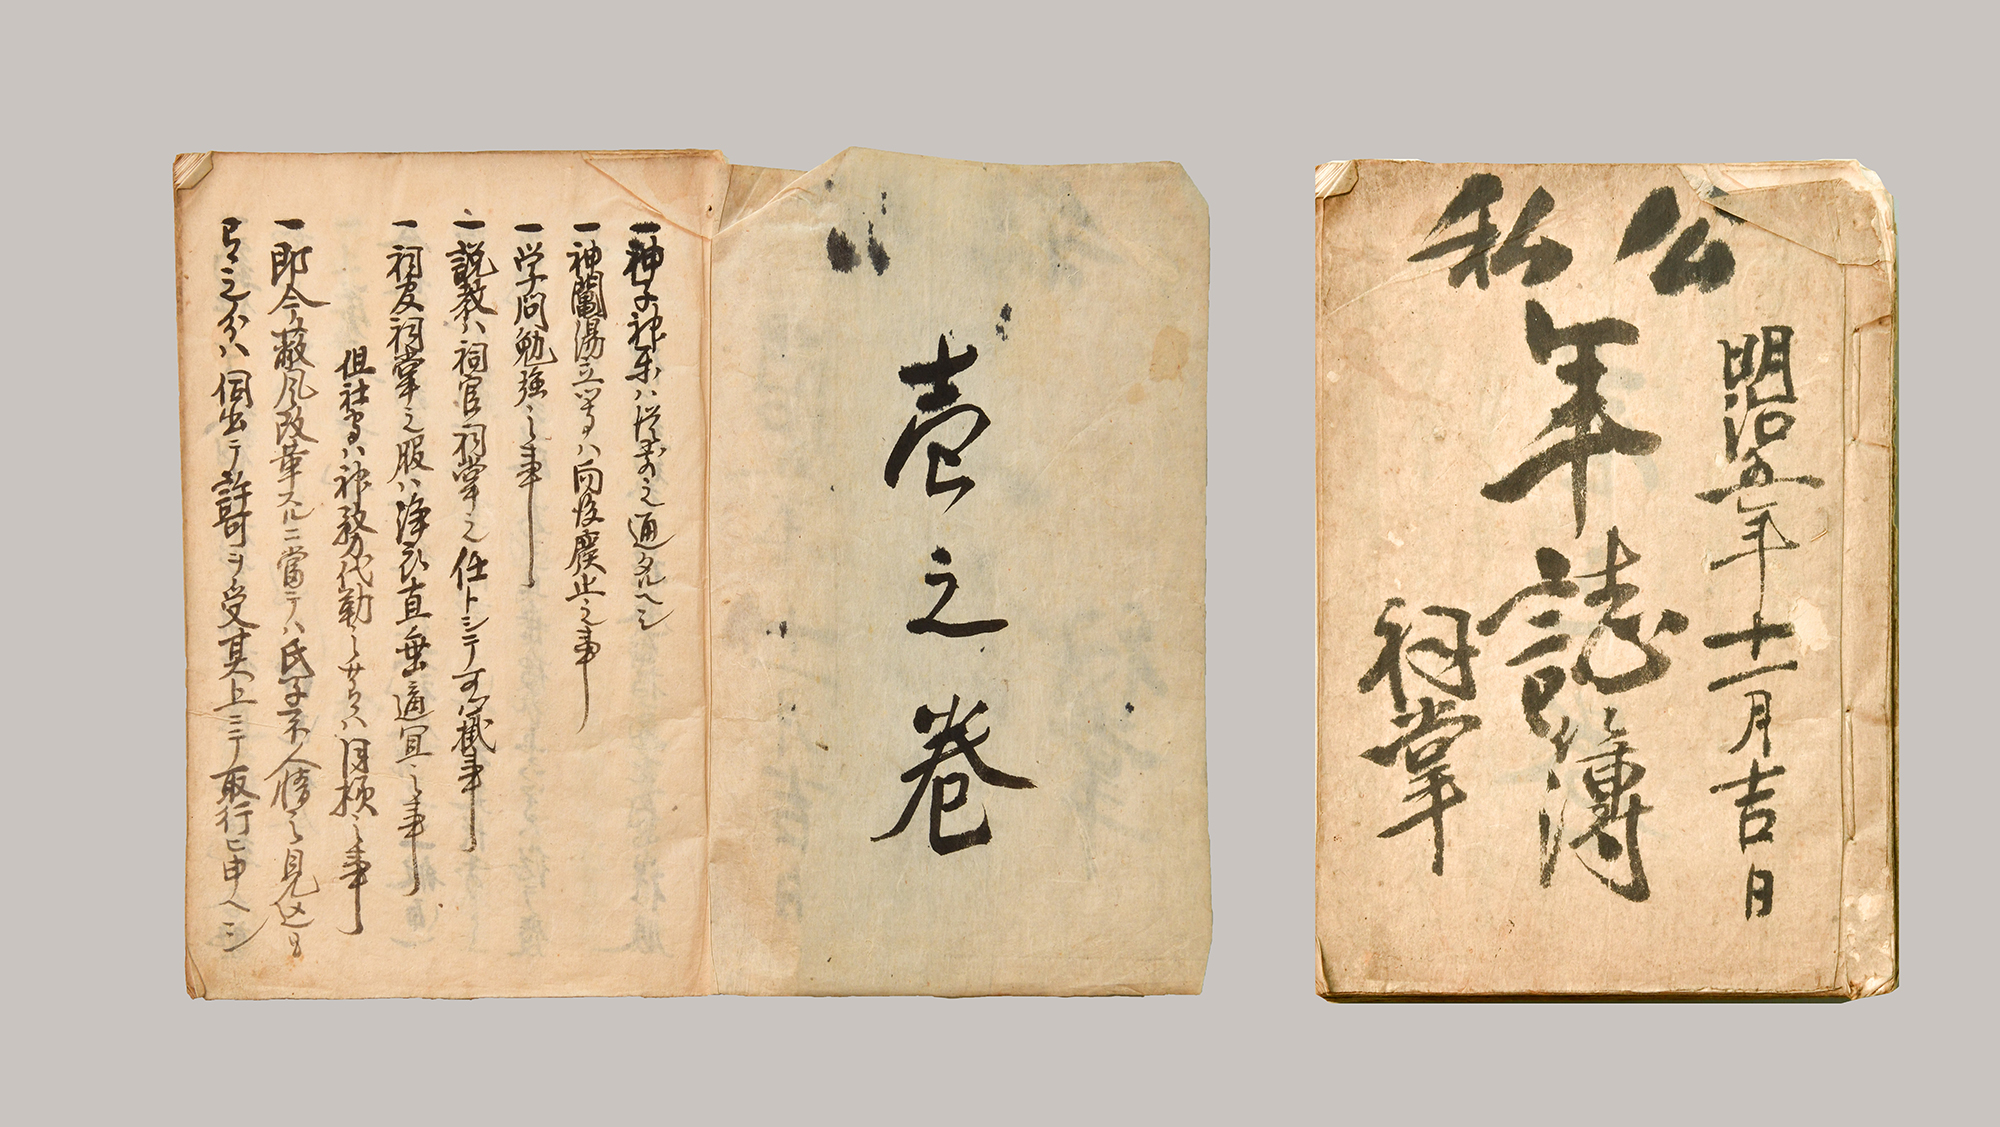 公私
明治五年十一月吉日
年誌記簿
祠掌
壱之巻
一神子神楽ハ従前之通タルヘシ
一神鬮湯立等ハ向後廃止之事
一学問勉強之事
一説教ハ祠官祠掌之任トシテ可心掛事
一祠官祠掌之服ハ浄衣直垂適宜之事
但社家ハ神務代勤之節ハ同様之事
一即今蔽風改革スルニ當テハ氏子不人情之見込も
有之分ハ伺出テ許可ヲ受其上ニテ取行ヒ申ヘシ